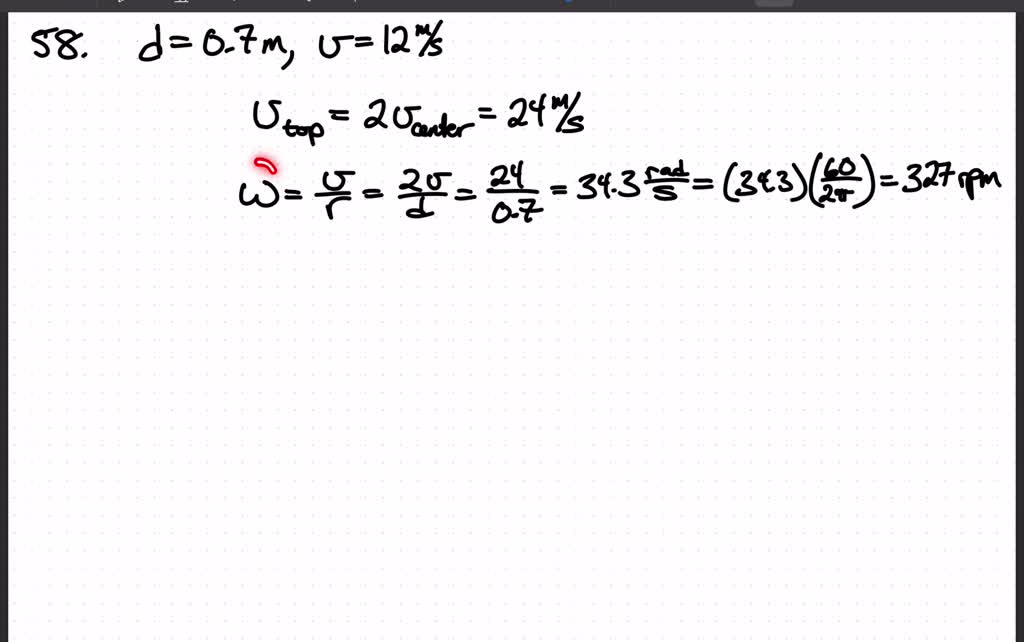 58. d = 0.7m, v = 12 m/s
v_top = 2v_center = 24 m/s
ω = v/r = 2v/d = 24/0.7 = 34.3 rad/s = (34.3)(60/2π) = 327 rpm